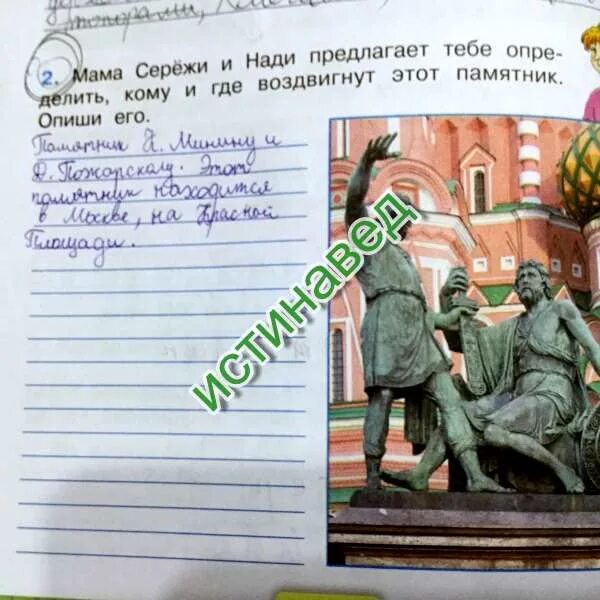 топорами,
2. Мама Серёжи и Нади предлагает тебе опре-
делить, кому и где воздвигнут этот памятник.
Опиши его.
Памятник К. Минину и
Д. Пожарскому. Этот
памятник находится
в Москве, на Красной
Площади.
истинавед